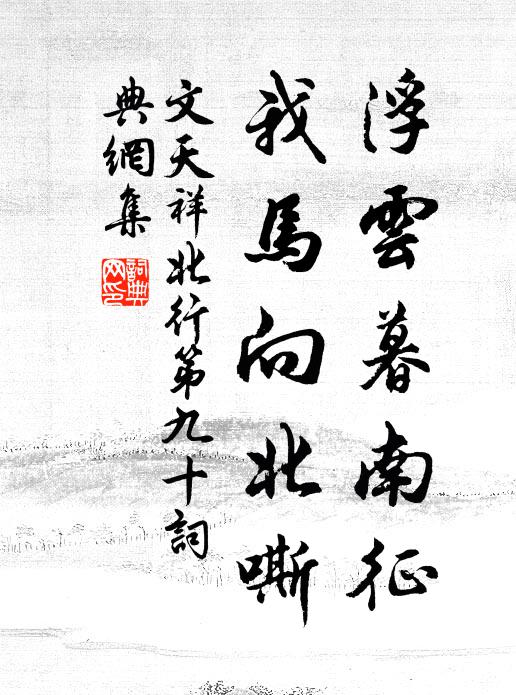 浮雲暮南征
我馬向北嘶
文天祥北行第九十詞
典網集
詞典
网印